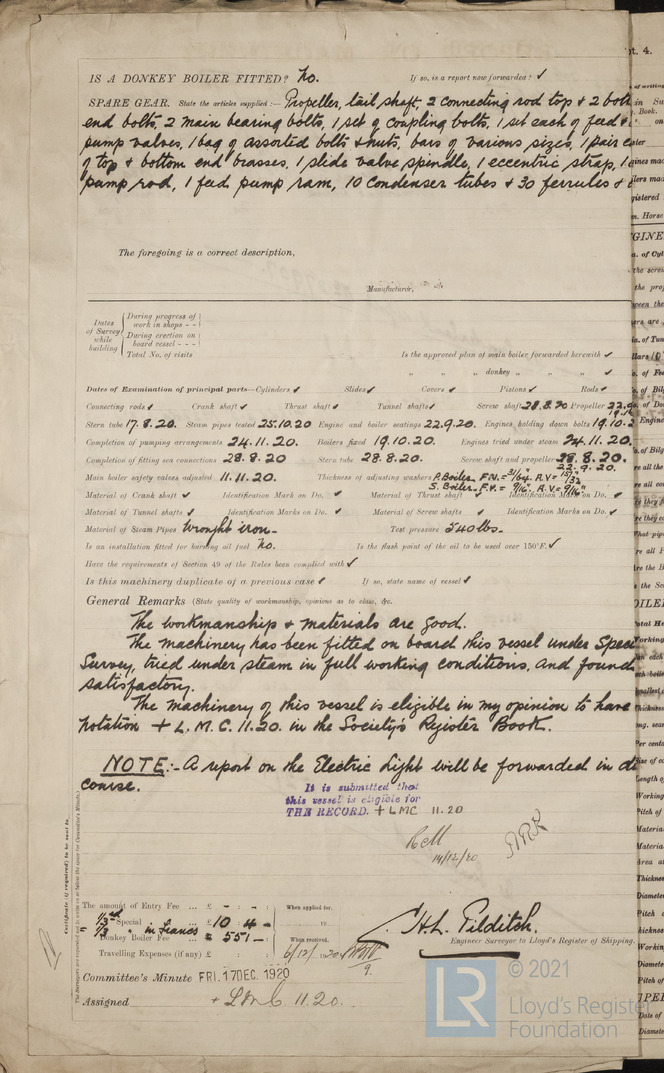 IS A DONKEY BOILER FITTED? No. If so, is a report now forwarded? ✓
SPARE GEAR. State the articles supplied :— Propeller, tail shaft, 2 connecting rod top & 2 bott
end bolts, 2 main bearing bolts, 1 set of coupling bolts, 1 set each of feed &
pump valves, 1 bag of assorted bolts & nuts, bars of various sizes, 1 pair
of top & bottom end brasses, 1 slide valve spindle, 1 eccentric strap, 1
pump rod, 1 feed pump ram, 10 condenser tubes & 30 ferrules &
The foregoing is a correct description,
Manufacturer.
Dates of Survey while building
During progress of work in shops - -
During erection on board vessel - - -
Total No. of visits
Is the approved plan of main boiler forwarded herewith ✓
" " " donkey " " " ✓
Dates of Examination of principal parts—Cylinders ✓ Slides ✓ Covers ✓ Pistons ✓ Rods ✓
Connecting rods ✓ Crank shaft ✓ Thrust shaft ✓ Tunnel shafts ✓ Screw shaft 28.8.20 Propeller 22.9.
Stern tube 17.8.20. Steam pipes tested 25.10.20 Engine and boiler seatings 22.9.20. Engines holding down bolts 19.10.2
Completion of pumping arrangements 24.11.20. Boilers fixed 19.10.20 Engines tried under steam 24.11.20.
Completion of fitting sea connections 28.8.20 Stern tube 28.8.20. Screw shaft and propeller 28.8.20.
22.9.20.
Main boiler safety valves adjusted 11.11.20. Thickness of adjusting washers P. Boiler F.V.=
S. Boiler F.V.= 9/16" A.V = 9/16"
Material of Crank shaft ✓ Identification Mark on Do. ✓ Material of Thrust shaft Identification Mark on Do. ✓
Material of Tunnel shafts ✓ Identification Marks on Do. ✓ Material of Screw shafts ✓ Identification Marks on Do. ✓
Material of Steam Pipes Wrought iron - Test pressure 540 lbs.
Is an installation fitted for burning oil fuel No. Is the flash point of the oil to be used over 150°F. ✓
Have the requirements of Section 49 of the Rules been complied with ✓
Is this machinery duplicate of a previous case ✓ If so, state name of vessel ✓
General Remarks (State quality of workmanship, opinions as to class, &c.
The workmanship & materials are good.
The machinery has been fitted on board this vessel under Speci
Survey, tried under steam in full working conditions, and found
satisfactory.
The machinery of this vessel is eligible in my opinion to have
notation + L.M.C. 11.20. in the Society's Register Book.
NOTE:- A report on the Electric Light will be forwarded in d
course.
It is submitted that
this vessel is eligible for
THE RECORD. + LMC 11.20
14/12/20
ARR
The amount of Entry Fee ... £ - : - :
1/3rd Special ... £ 10 : 4 : -
" 2/3 " in francs
Donkey Boiler Fee ... £ 551 -
Travelling Expenses (if any) £ : :
When applied for,
When received,
6/12/20
C.H.L. Pilditch.
Engineer Surveyor to Lloyd's Register of Shipping.
Committee's Minute FRI. 17 DEC. 1920
Assigned + L.M.C. 11.20.
© 2021
LR
Lloyd's Register
Foundation